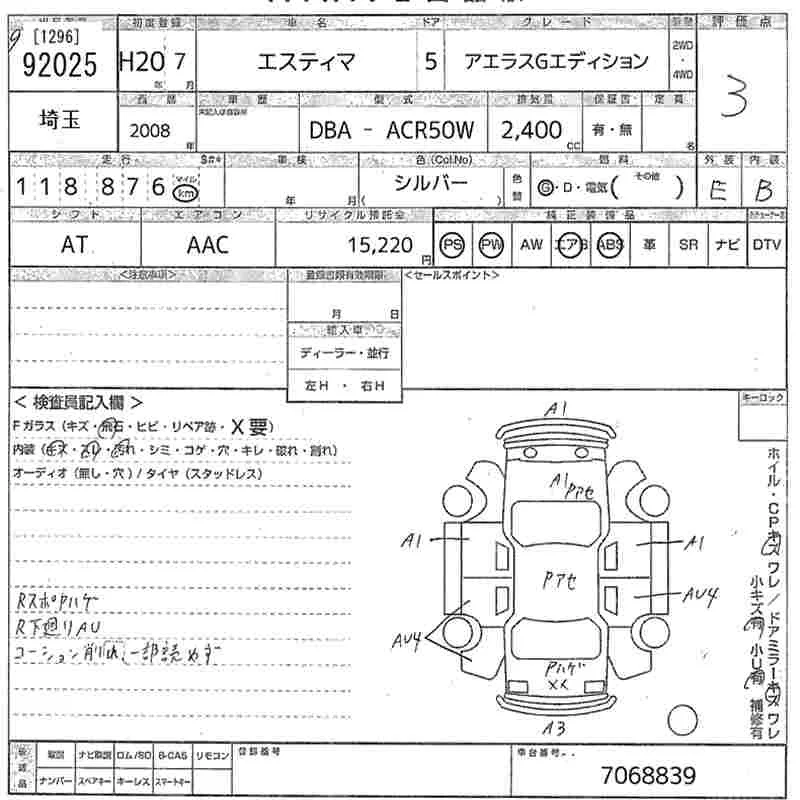 初度登録 車名 ドア グレード 評価点
[1296]
92025 H20 7 エスティマ 5 アエラスGエディション 2WD・4WD 3
年 月
埼玉 西暦 車歴 型式 排気量 保証書 定員
未記入は自家用
2008 年 DBA - ACR50W 2,400 CC 有・無 名
走行 車検 色(Col.No) 燃料 外装 内装
118876 マイル km 年 月 シルバー 色替 G・D・電気( その他 ) E B
シフト エアコン リサイクル預託金 純正装備品
AT AAC 15,220 円 PS PW AW エアB ABS 革 SR ナビ DTV
<注意事項> 登録書類有効期限 <セールスポイント>
月 日
輸入車
ディーラー・並行
左H ・ 右H
< 検査員記入欄 > キーロック
Fガラス (キズ・飛石・ヒビ・リペア跡・X要)
内装 (キズ・スレ・汚れ・シミ・コゲ・穴・キレ・破れ・割れ)
オーディオ (無し・穴) / タイヤ (スタッドレス)
A1
A1 Pアセ
A1 A1
Pアセ
AU4
AU4
Pハゲ
XX
A3
RスポPハゲ
R下廻りAU
コーション削れ、一部読めず
ホイル・CPキズ ワレ / ドアミラーキズ ワレ
小キズ有 小U有 補修有
確認品 取説 ナビ取説 ロム/SD B-CAS リモコン 登録番号 車台番号
ナンバー スペアキー キーレス スマートキー
7068839